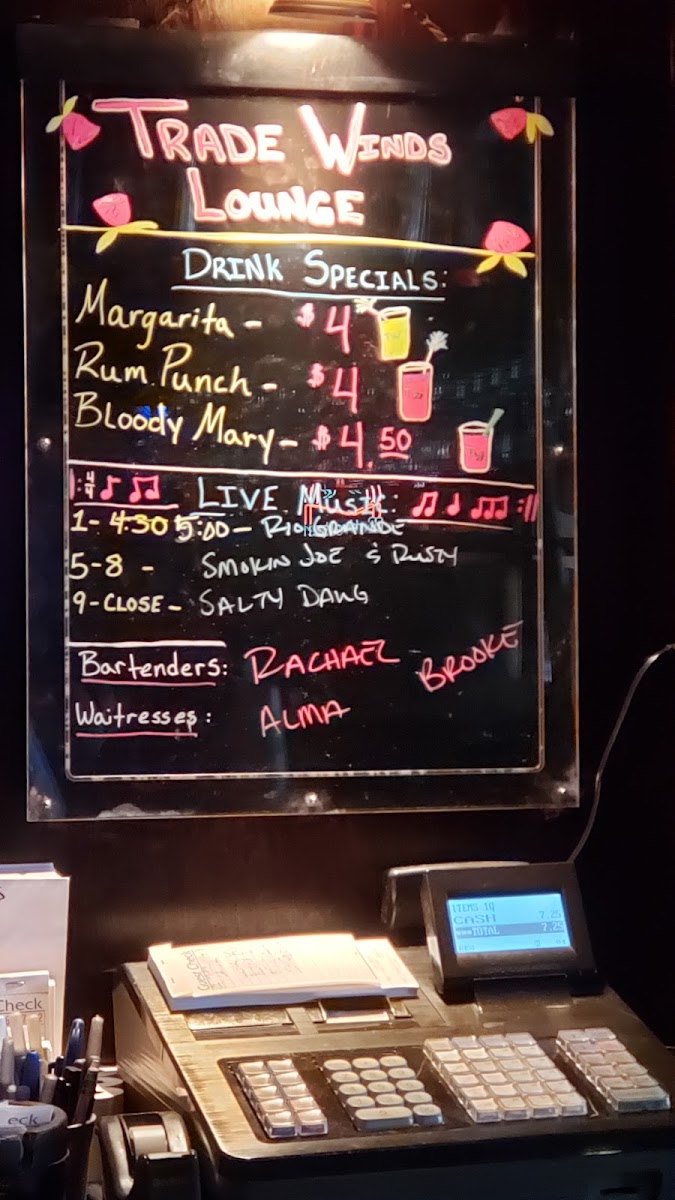 TRADE WINDS
LOUNGE
DRINK SPECIALS:
Margarita - $4
Rum Punch - $4
Bloody Mary - $4.50
4/4 LIVE Music:
1-4:30 5:00 - RIO GRANDE
5-8 - SMOKIN JOE & RUSTY
9-CLOSE - SALTY DAWG
Bartenders: RACHAEL BROOKE
Waitresses: ALMA
ITEMS 1Q
CASH 7.25
***TOTAL 7.25
Guest Check
Check
eck